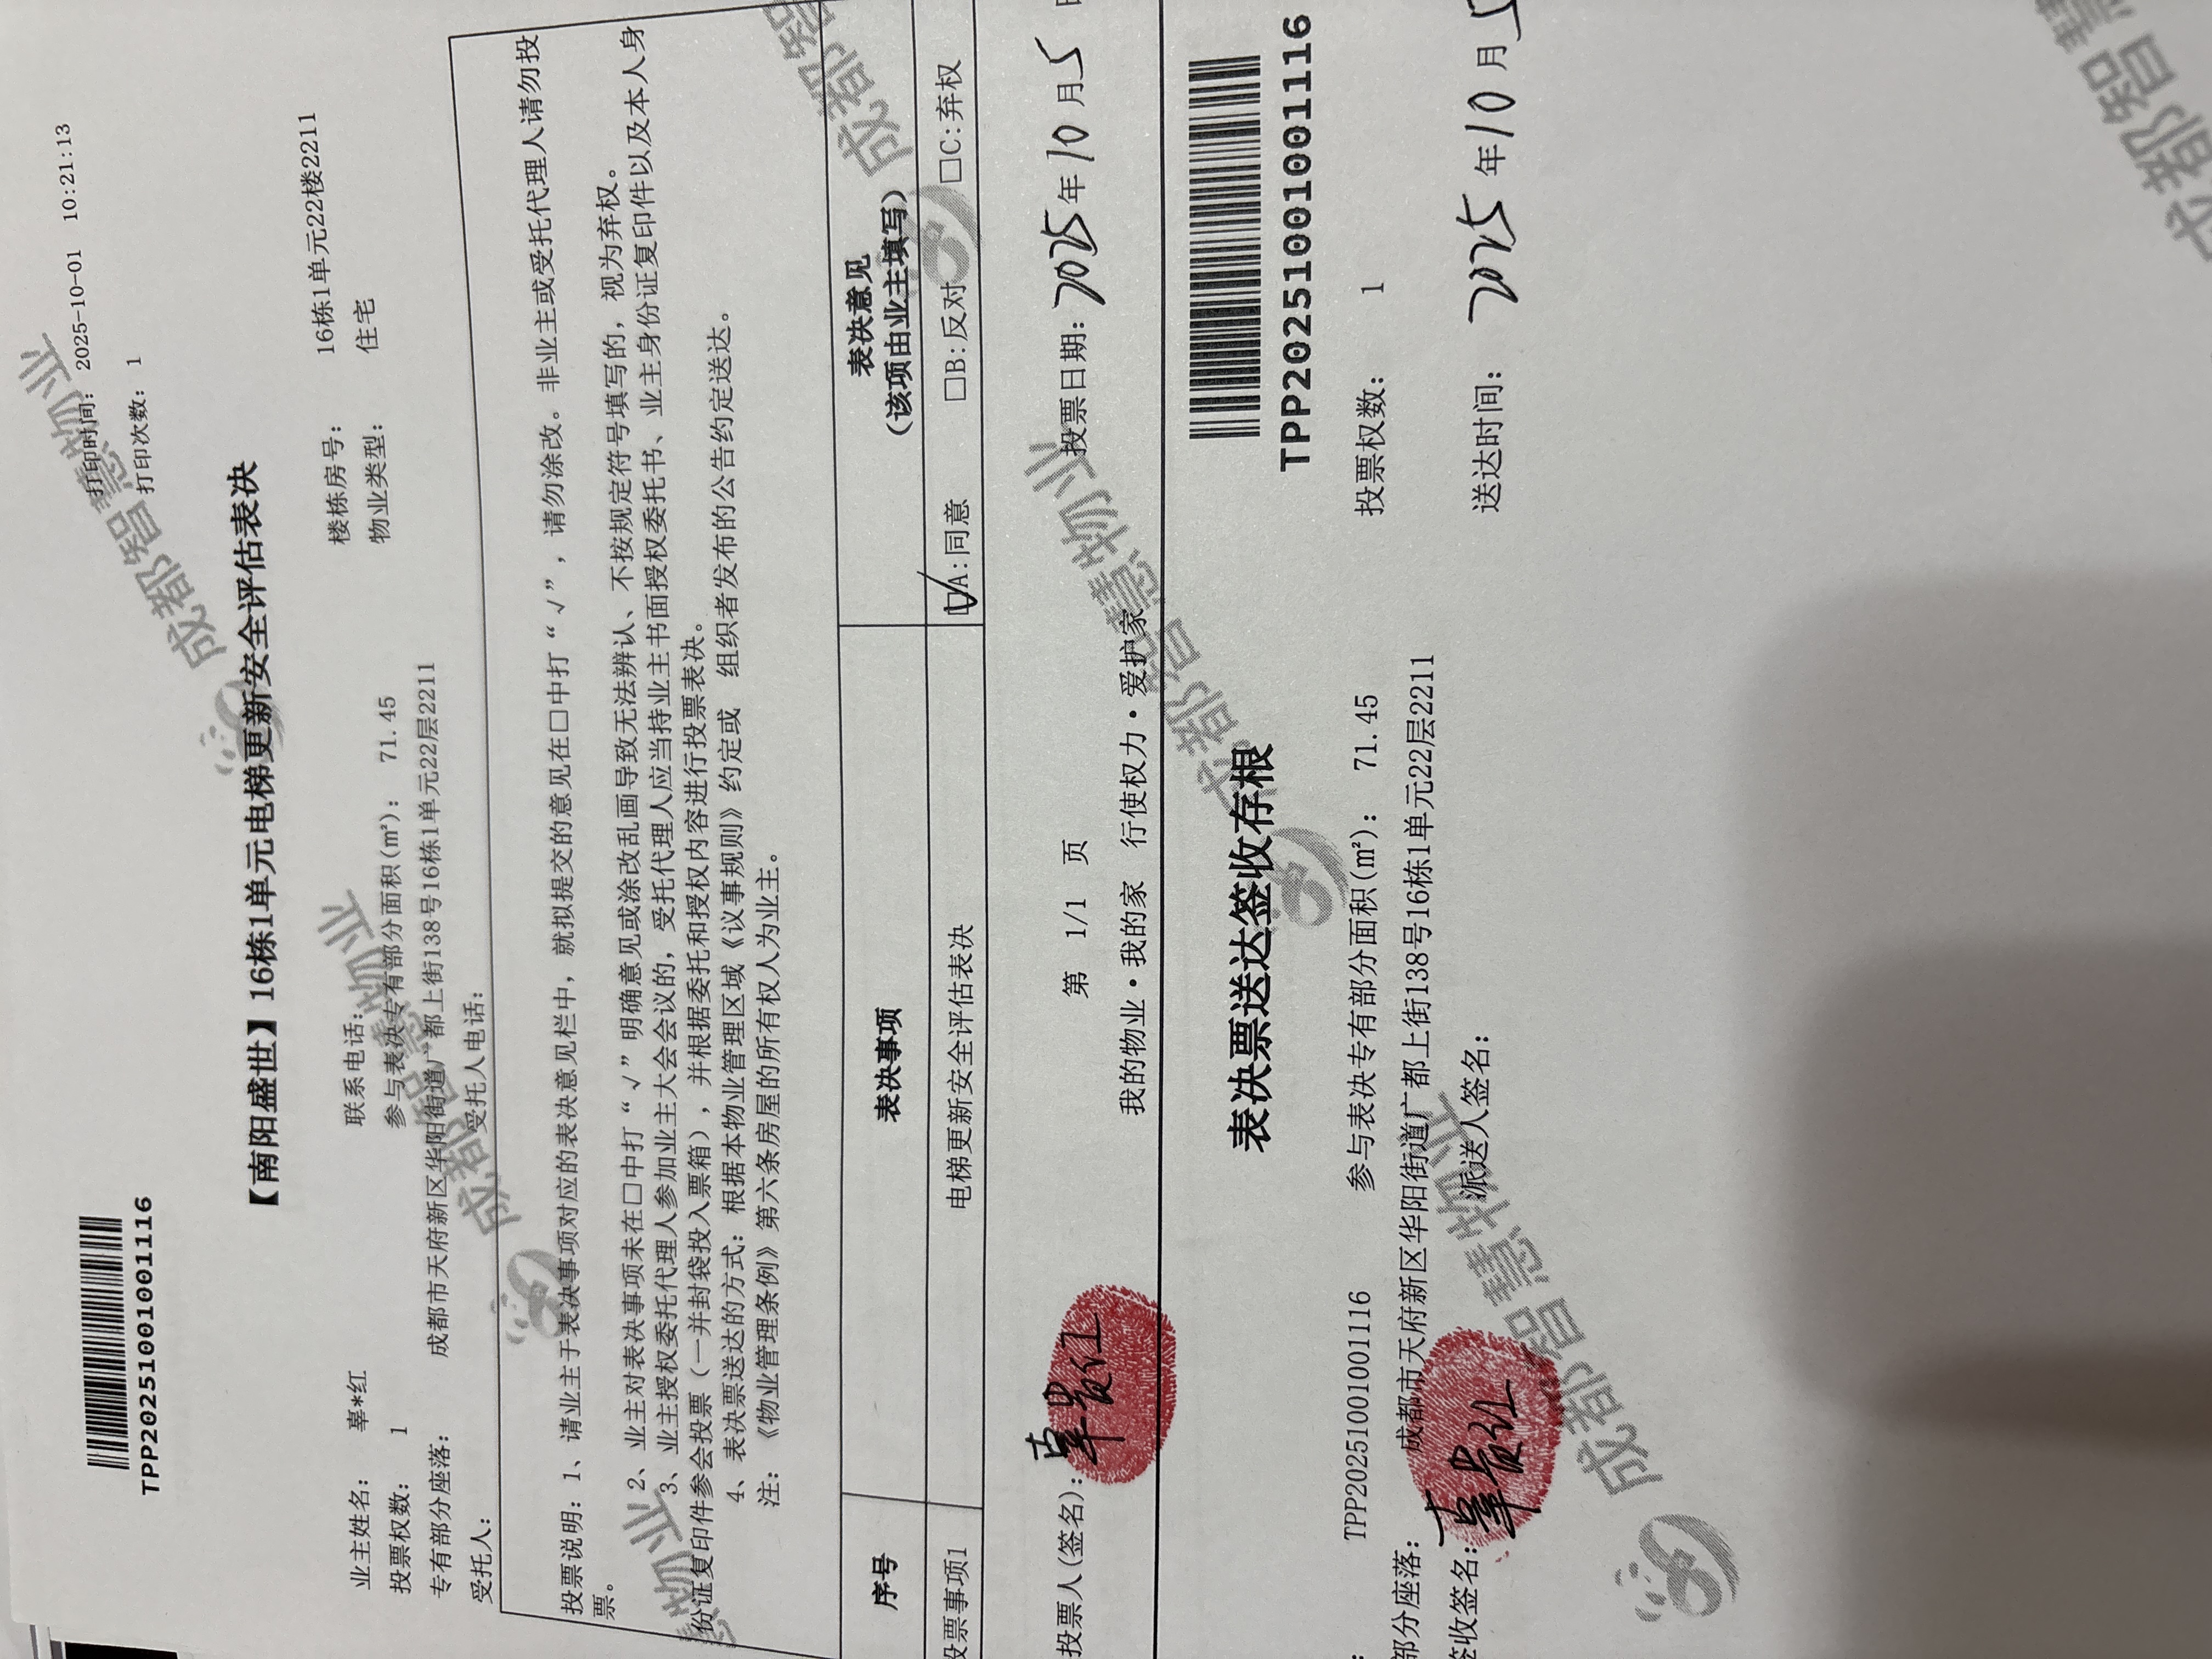 TPP20251001001116
打印时间: 2025-10-01 10:21:13
打印次数: 1
【南阳盛世】16栋1单元电梯更新安全评估表决
业主姓名: 辜*红 联系电话: 楼栋房号: 16栋1单元22楼2211
投票权数: 1 参与表决专有部分面积(㎡): 71.45 物业类型: 住宅
专有部分座落: 成都市天府新区华阳街道广都上街138号16栋1单元22层2211
受托人: 受托人电话:
投票说明: 1、请业主于表决事项对应的表决意见栏中，就拟提交的意见在□中打“√”，请勿涂改。非业主或受托代理人请勿投
票。
2、业主对表决事项未在□中打“√”明确意见或涂改乱画导致无法辨认、不按规定符号填写的，视为弃权。
3、业主授权委托代理人参加业主大会会议的，受托代理人应当持业主书面授权委托书、业主身份证复印件以及本人身
份证复印件参会投票（一并封袋投入票箱），并根据委托和授权内容进行投票表决。
4、表决票送达的方式: 根据本物业管理区域《议事规则》约定或 组织者发布的公告约定送达。
注: 《物业管理条例》第六条房屋的所有权人为业主。
序号 表决事项 表决意见
（该项由业主填写）
投票事项1 电梯更新安全评估表决 ☑A:同意 □B:反对 □C:弃权
投票人(签名): 辜贵红 第 1/1 页 投票日期: 2025年10月5日
我的物业·我的家 行使权力·爱护家
表决票送达签收存根
TPP20251001001116
: TPP20251001001116 参与表决专有部分面积(㎡): 71.45 投票权数: 1
部分座落: 成都市天府新区华阳街道广都上街138号16栋1单元22层2211
签收签名: 辜贵红 派送人签名: 送达时间: 2025年10月5
成都智慧物业
成都智慧物业
慧物业
成都智
成都智慧物业
成都智慧物业
成都智慧